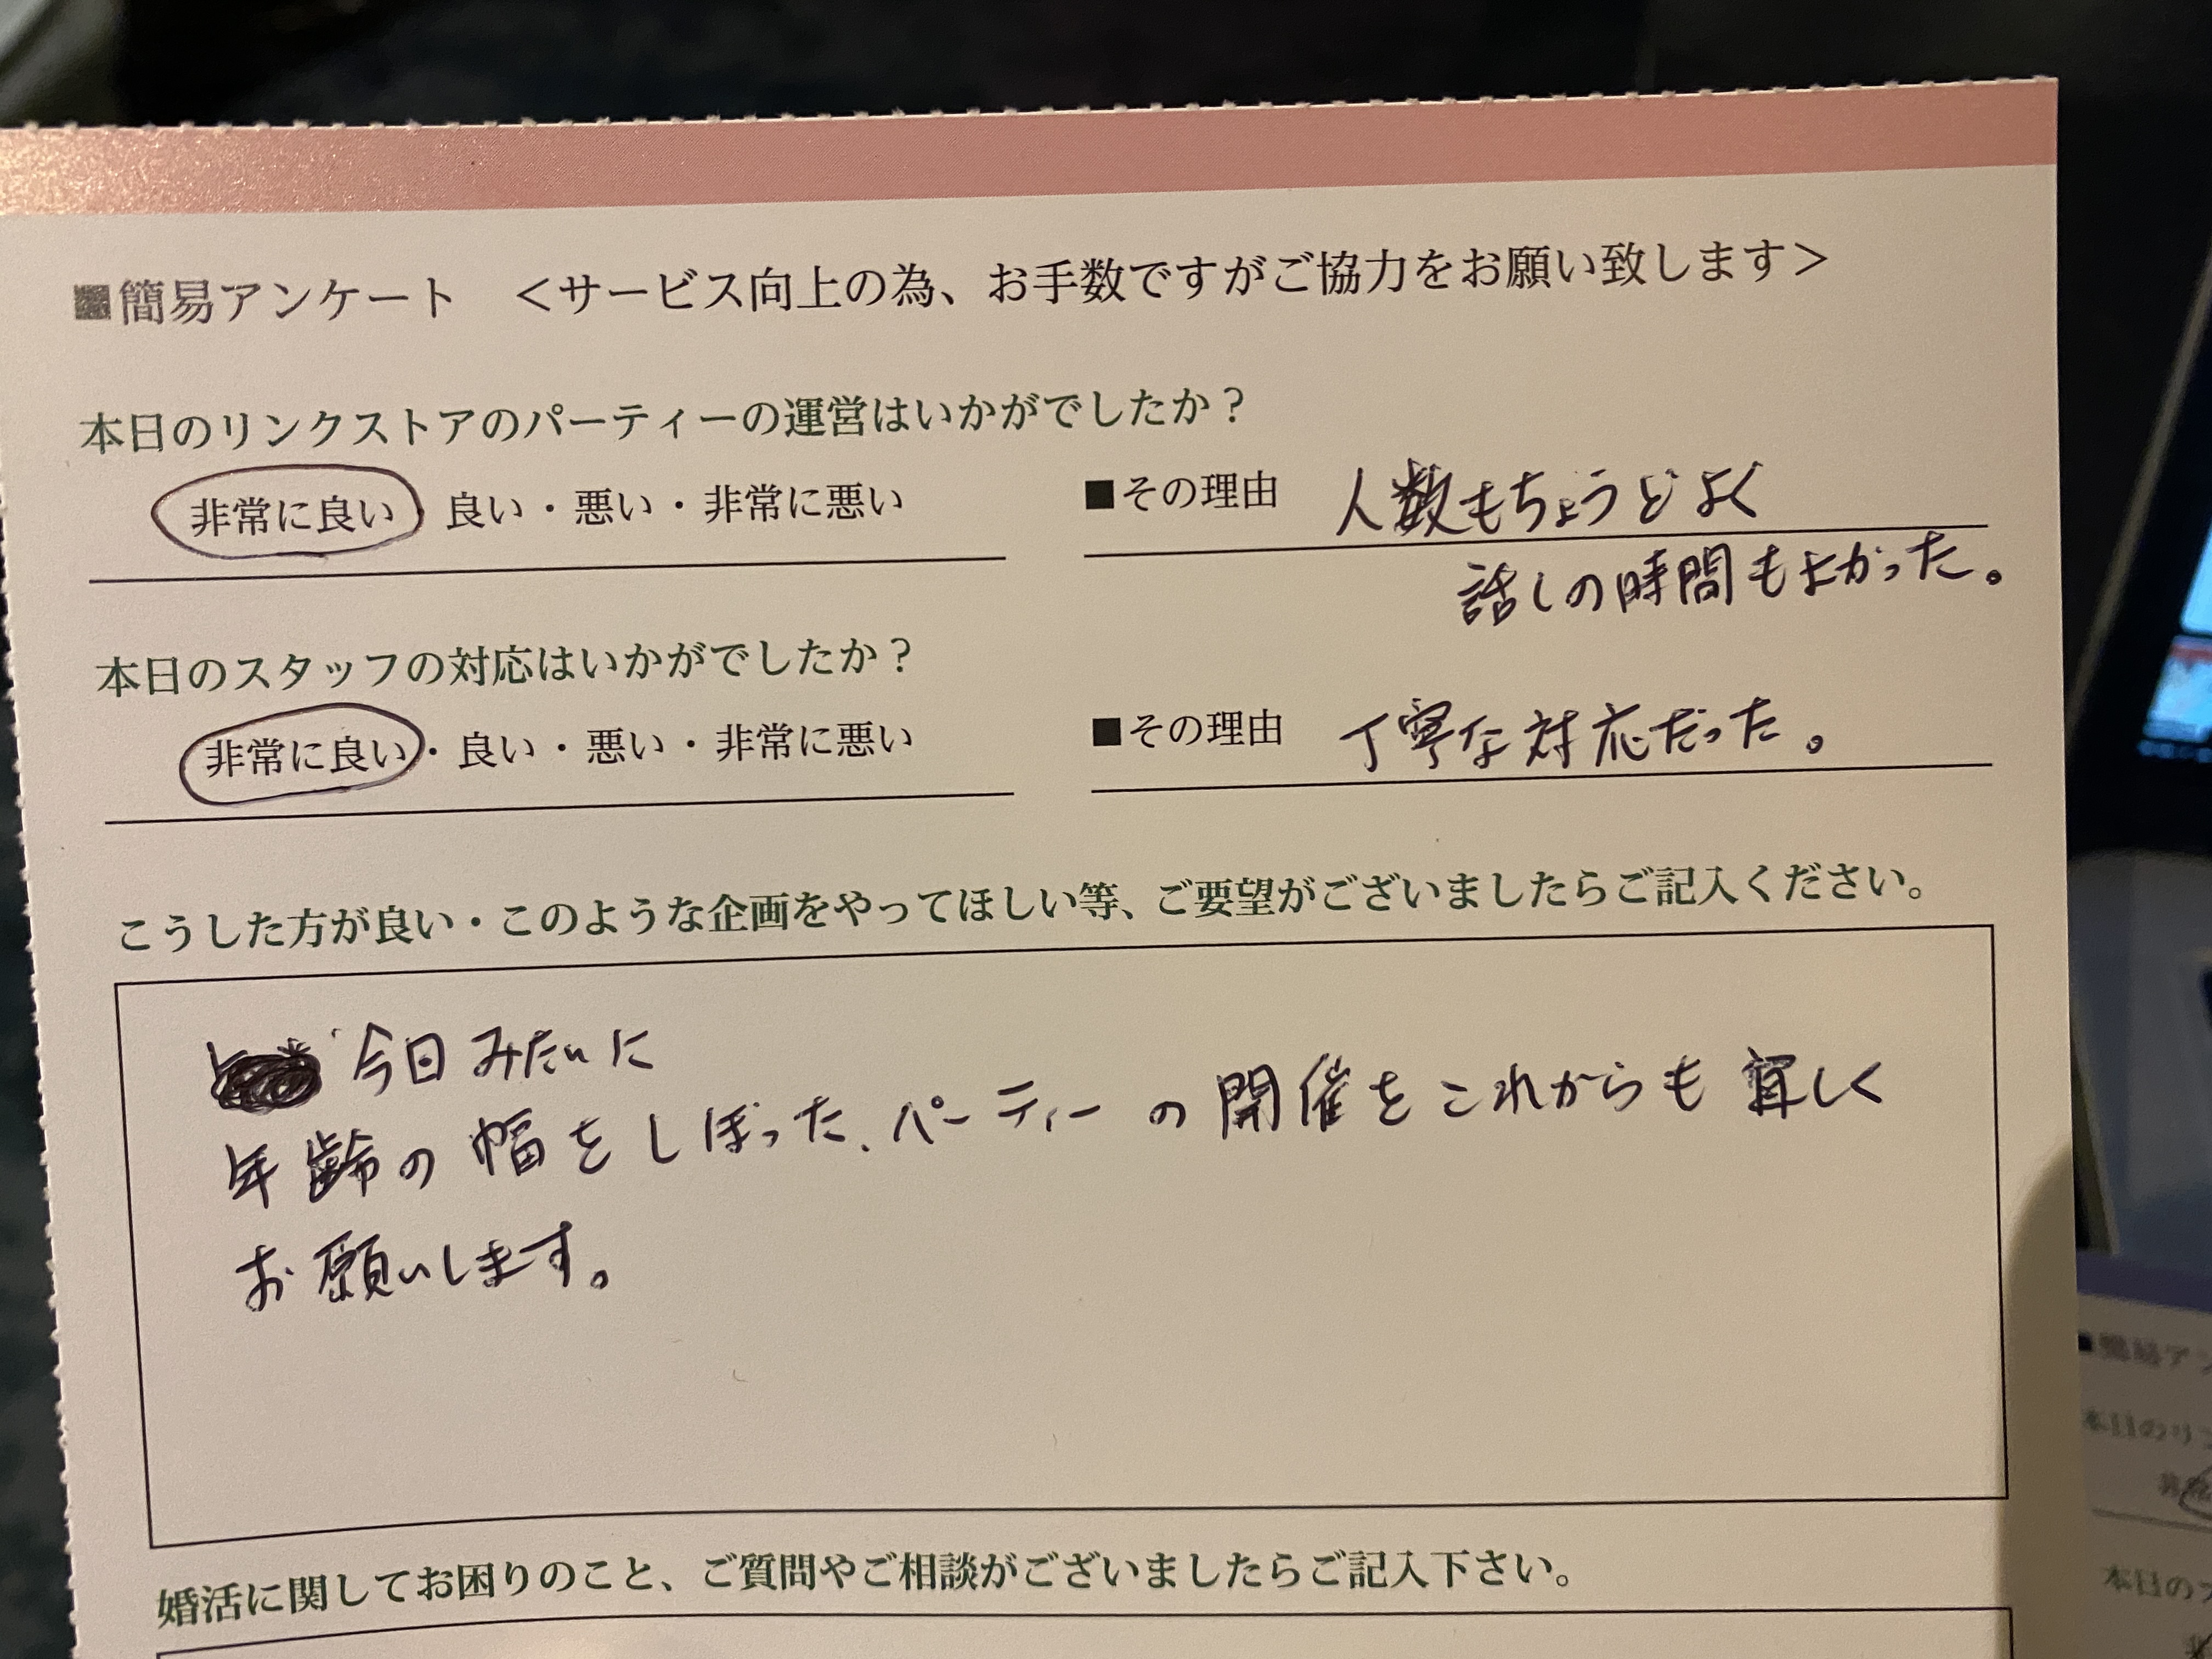 ■簡易アンケート　＜サービス向上の為、お手数ですがご協力をお願い致します＞
本日のリンクストアのパーティーの運営はいかがでしたか？
非常に良い 良い・悪い・非常に悪い
■その理由 人数もちょうどよく
話しの時間もよかった。
本日のスタッフの対応はいかがでしたか？
非常に良い・良い・悪い・非常に悪い
■その理由 丁寧な対応だった。
こうした方が良い・このような企画をやってほしい等、ご要望がございましたらご記入ください。
今日みたいに
年齢の幅をしぼった、パーティーの開催をこれからも宜しく
お願いします。
婚活に関してお困りのこと、ご質問やご相談がございましたらご記入下さい。
■簡易アン
本日のリン
本日のス